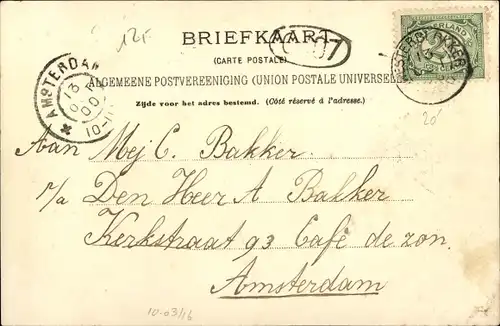 12F
BRIEFKAART
(CARTE POSTALE)
ALGEMEENE POSTVEREENIGING (UNION POSTALE UNIVERSELLE)
Zijde voor het adres bestemd. (Côté réservé à l'adresse.)
AMSTERDAM
NEDERLAND
20
Aan Mej C. Bakker
p/a Den Heer A Bakker
Kerkstraat 93 Café de zon.
Amsterdam
10-03/16